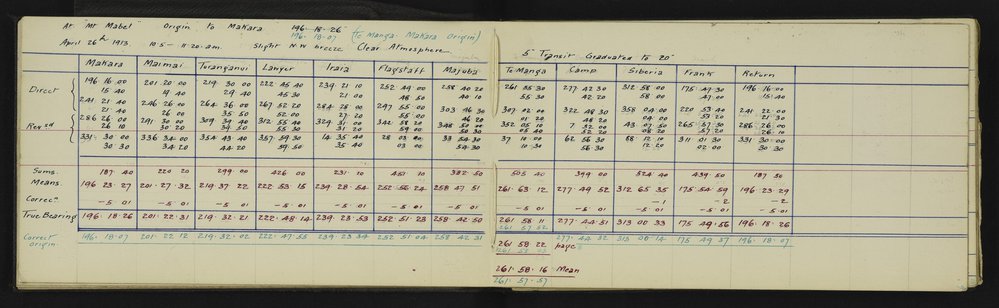 At "Mt Mabel" Origin to Makara 196·18·26
196·18·26 (Te Manga-Makara Origin)
April 26th 1913 10·5 – 11·20 a.m. Slight N.W breeze Clear Atmosphere
5" Transit Graduated to 20"
Makara Maimai Turanganui Langer Iraia Flagstaff Majuba Te Manga Camp Siberia Frank Return
Direct 196 16 00 201 20 00 219 30 00 222 45 40 239 21 10 252 49 00 258 40 20 261 55 30 277 42 30 312 58 00 175 47 30 196 16 00
15 40 19 40 29 40 45 30 21 00 48 50 40 10 55 30 42 20 58 00 47 00 15 40
241 21 40 246 26 00 264 36 00 267 52 20 284 28 00 297 55 00 303 46 30 307 02 00 322 48 30 358 04 00 220 53 40 241 22 00
21 40 26 00 35 50 52 00 55 00 46 20 01 20 48 20 04 00 53 20
Revsd 286 26 00 291 30 00 309 39 40 312 55 40 324 31 00 342 58 20 348 50 00 352 05 10 7 52 00 43 07 50 265 57 30 286 26 00
26 10 30 20 39 50 55 30 31 20 59 00 50 30 05 40 52 20 08 20 57 20 26 10
331 30 00 336 34 00 354 43 40 357 59 30 14 35 40 28 03 00 33 54 30 37 10 00 52 56 30 88 12 10 311 01 30 331 30 00
30 30 34 20 44 20 59 50 35 40 03 00 54 30 10 30 56 30 12 20 02 00 30 30
Sums. 187·40 220 20 299·00 426 00 231·10 451 10 382·50 505 40 399 00 524·40 439·50 187 50
Means. 196·23·27 201·27·32 219 37 22 222·53·15 239·28·54 252·56·24 258·47·51 261·63·12 277·49·52 312·65·35 175·54·59 196·23·29
Correcn –5 01 –5 01 –5 01 –5 01 –5 01 –5 01 –5 01 –5 01 –5 01 –5 01 –5 01 –5 01
–1 –2 –2
True Bearing 196·18·26 201·22·31 219·32·21 222·48·14 239·23·53 252·51·23 258·42·50 261 58 11 277·44·51 313 00 33 175·49·56 196·18·26
261 57 52
Correct Origin. 196·18·07 201·22 12 219·32·02 222·47·55 239·23·34 252 51·04 258 42 31 277·44 32 313 00 14 175 49 37 196·18·07
261 58 22 page
261·58·16 Mean
261·57·57